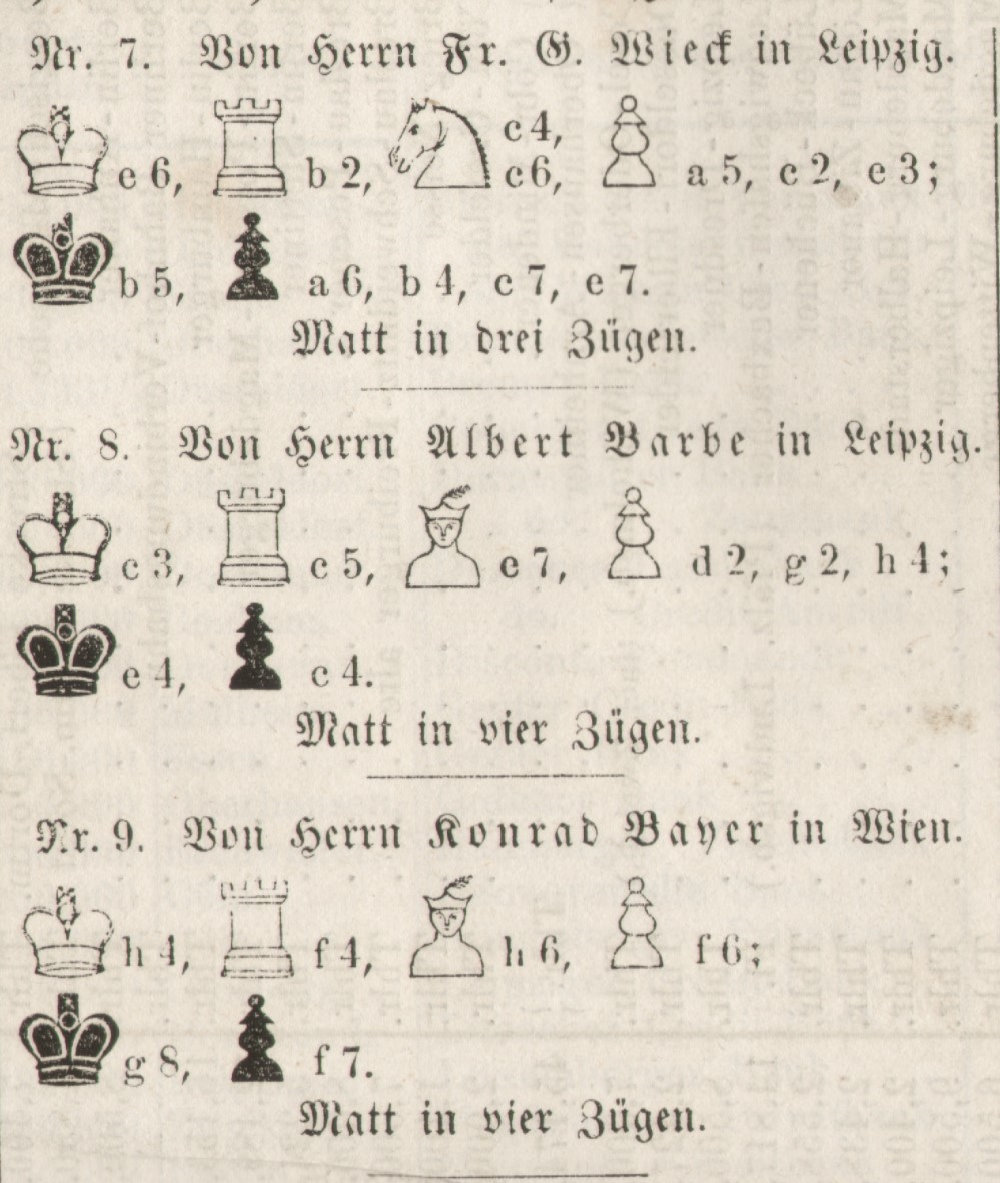 Nr. 7. Von Herrn Fr. G. Wieck in Leipzig.
c 4,
e 6, b 2, c 6, a 5, c 2, e 3;
b 5, a 6, b 4, c 7, e 7.
Matt in drei Zügen.
Nr. 8. Von Herrn Albert Barbe in Leipzig.
c 3, c 5, e 7, d 2, g 2, h 4;
e 4, c 4.
Matt in vier Zügen.
Nr. 9. Von Herrn Konrad Bayer in Wien.
h 4, f 4, h 6, f 6;
g 8, f 7.
Matt in vier Zügen.